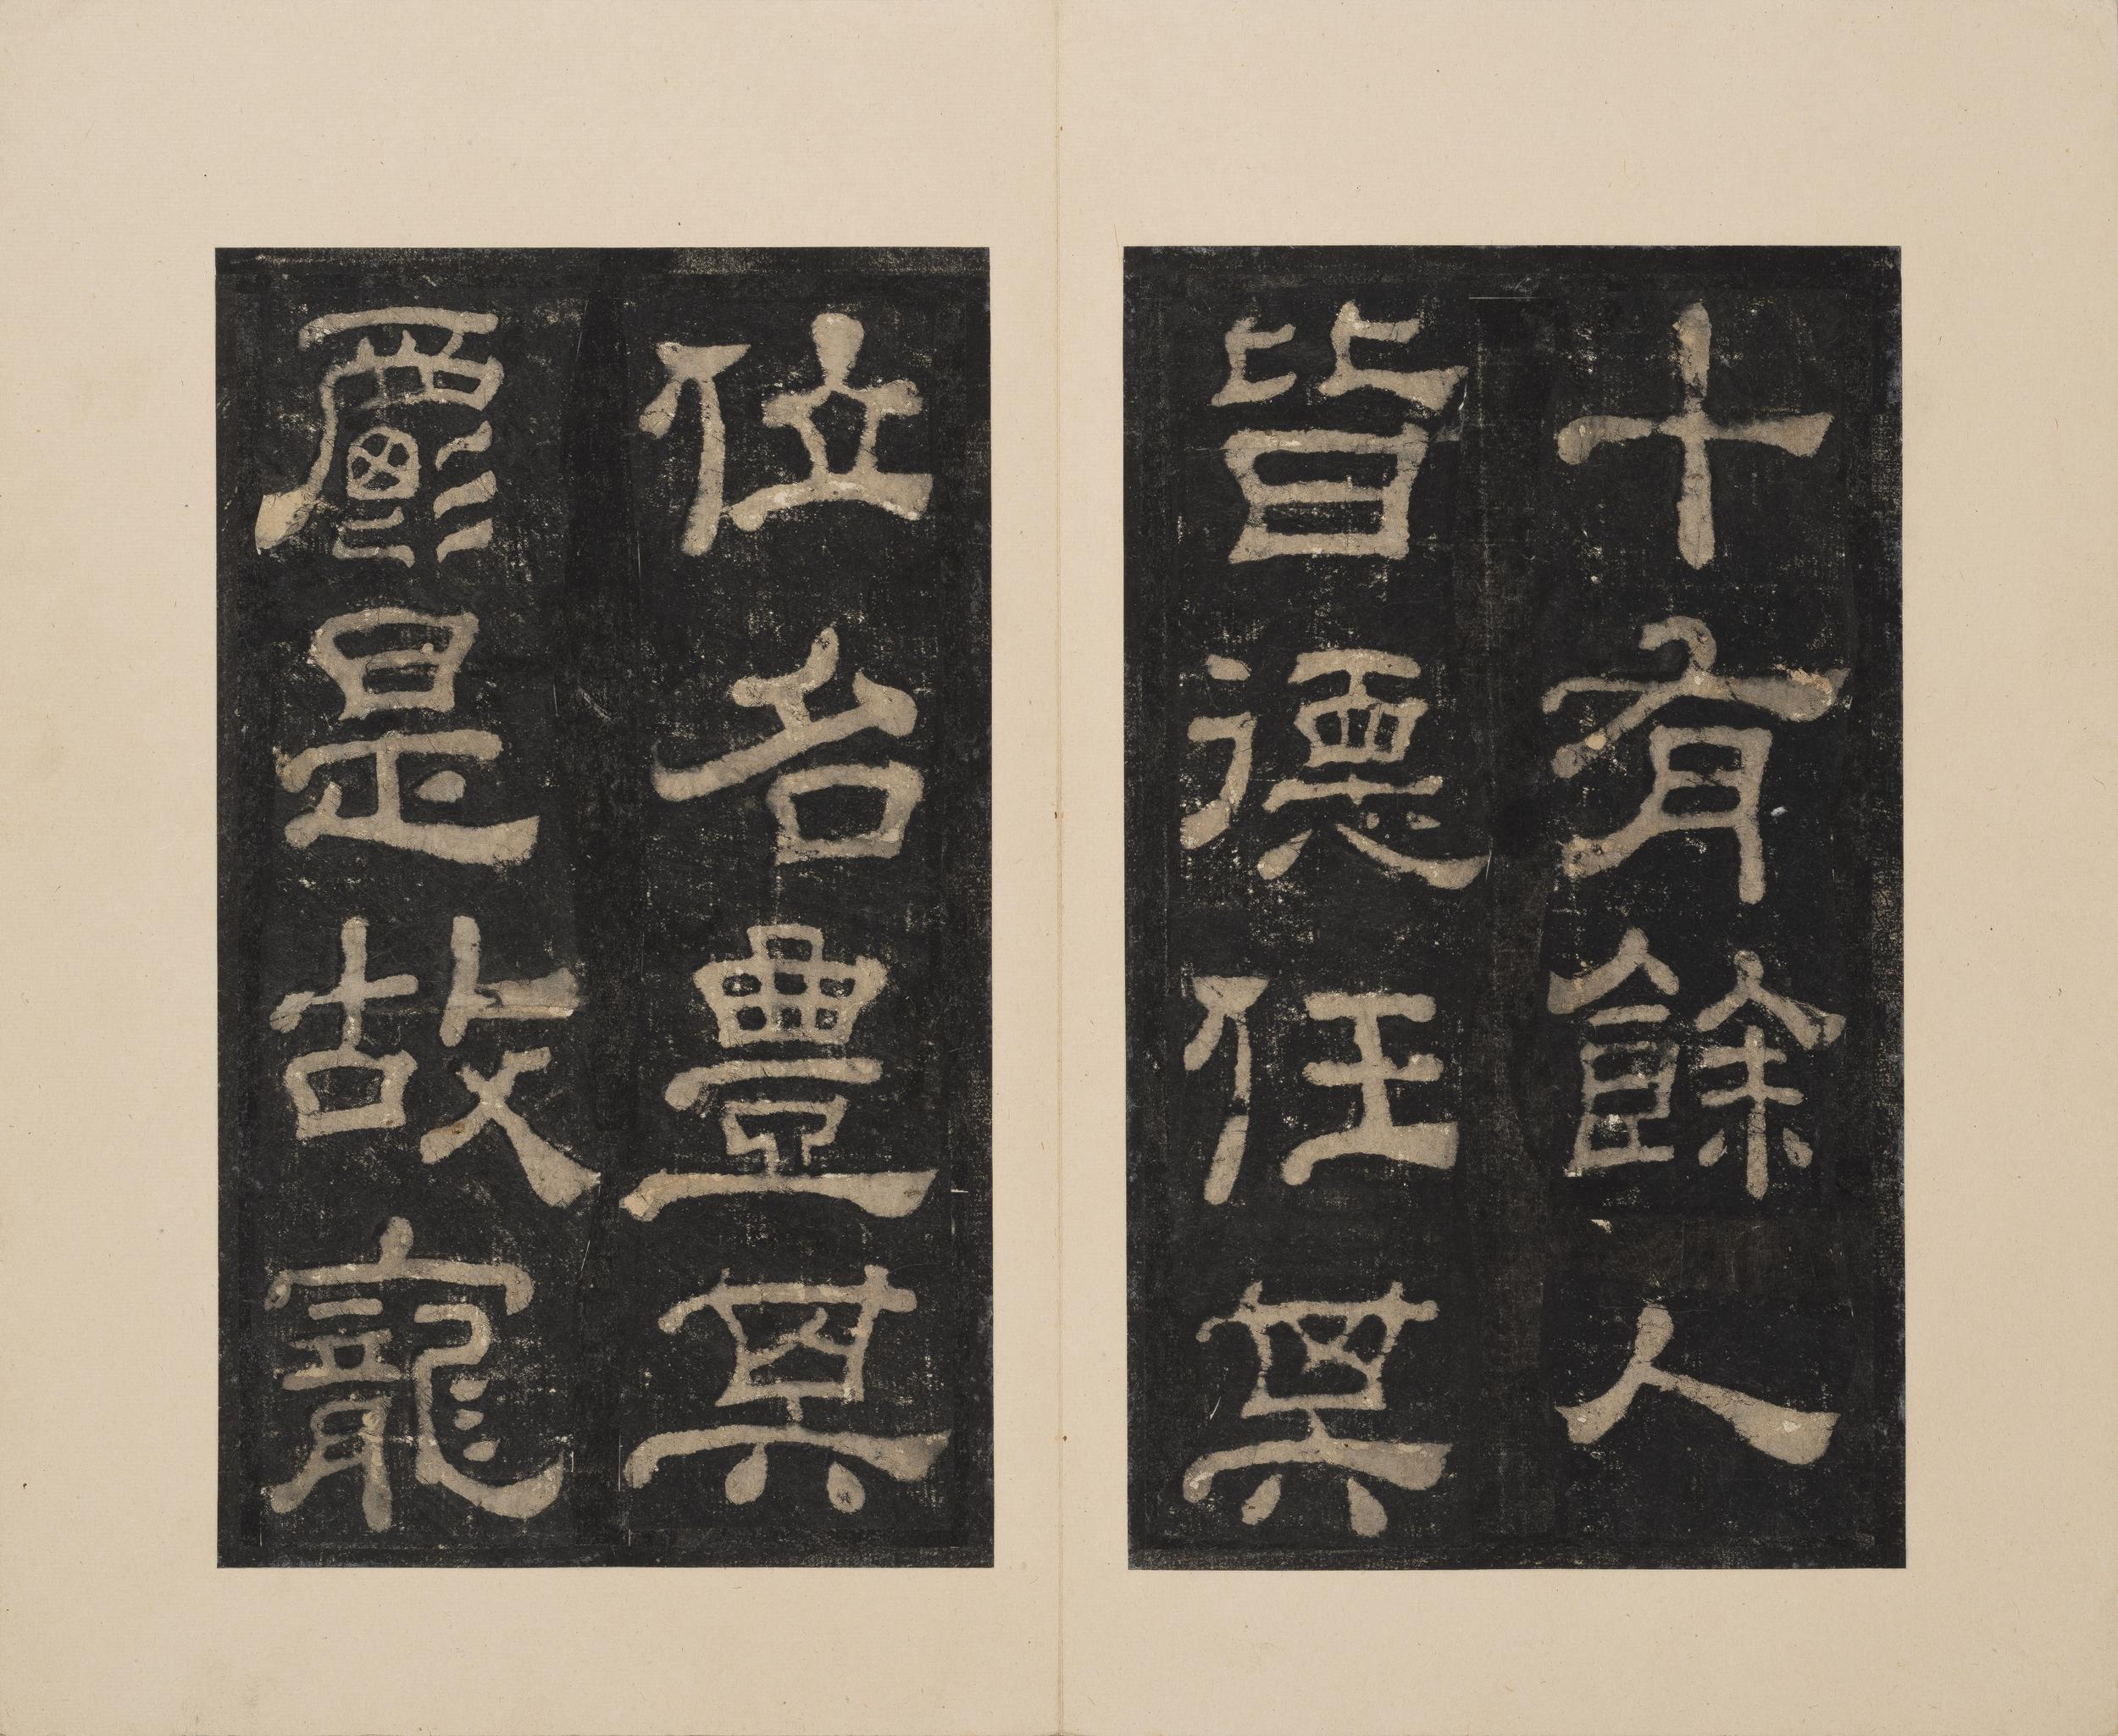 十有餘人
皆德任其
位名豐其
爵是故寵